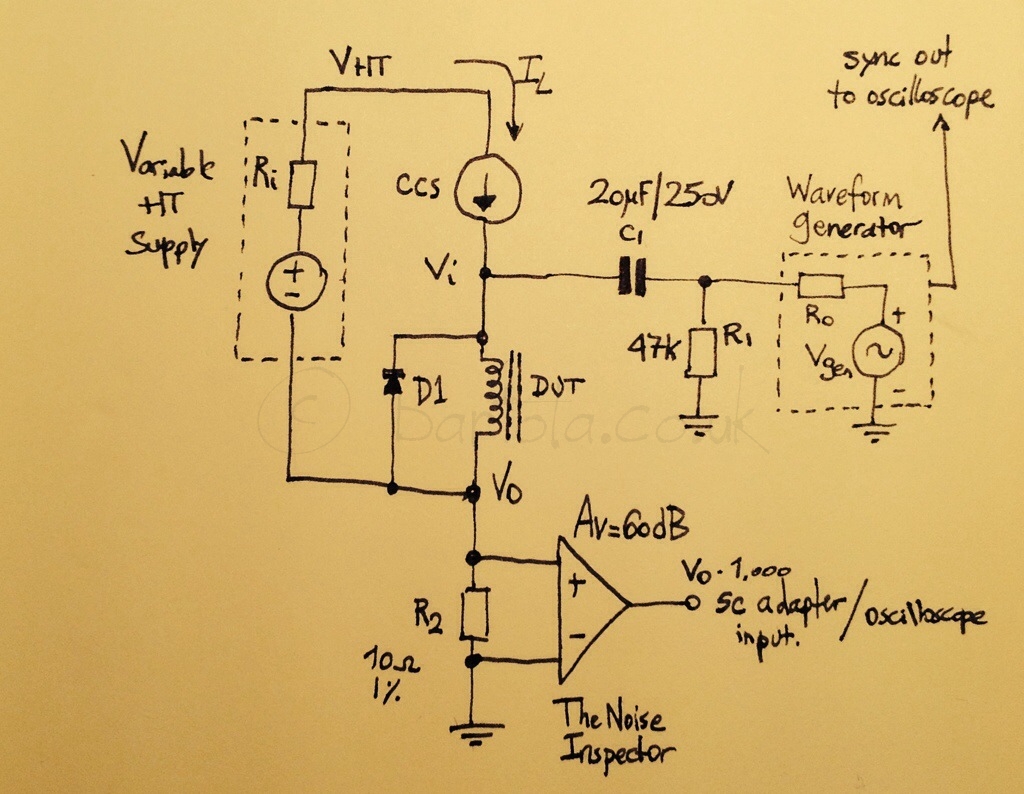 VHT
IL
sync out
to oscilloscope
Variable
HT
Supply
Ri
+
-
CCS
20µF/250V
C1
Waveform
generator
Vi
47k
R1
Ro
+
Vgen
~
-
D1
DUT
© Bartola.co.uk
Vo
Av=60dB
+
-
Vo · 1,000
SC adapter
input.
/oscilloscope
R2
10Ω
1%
The Noise
Inspector